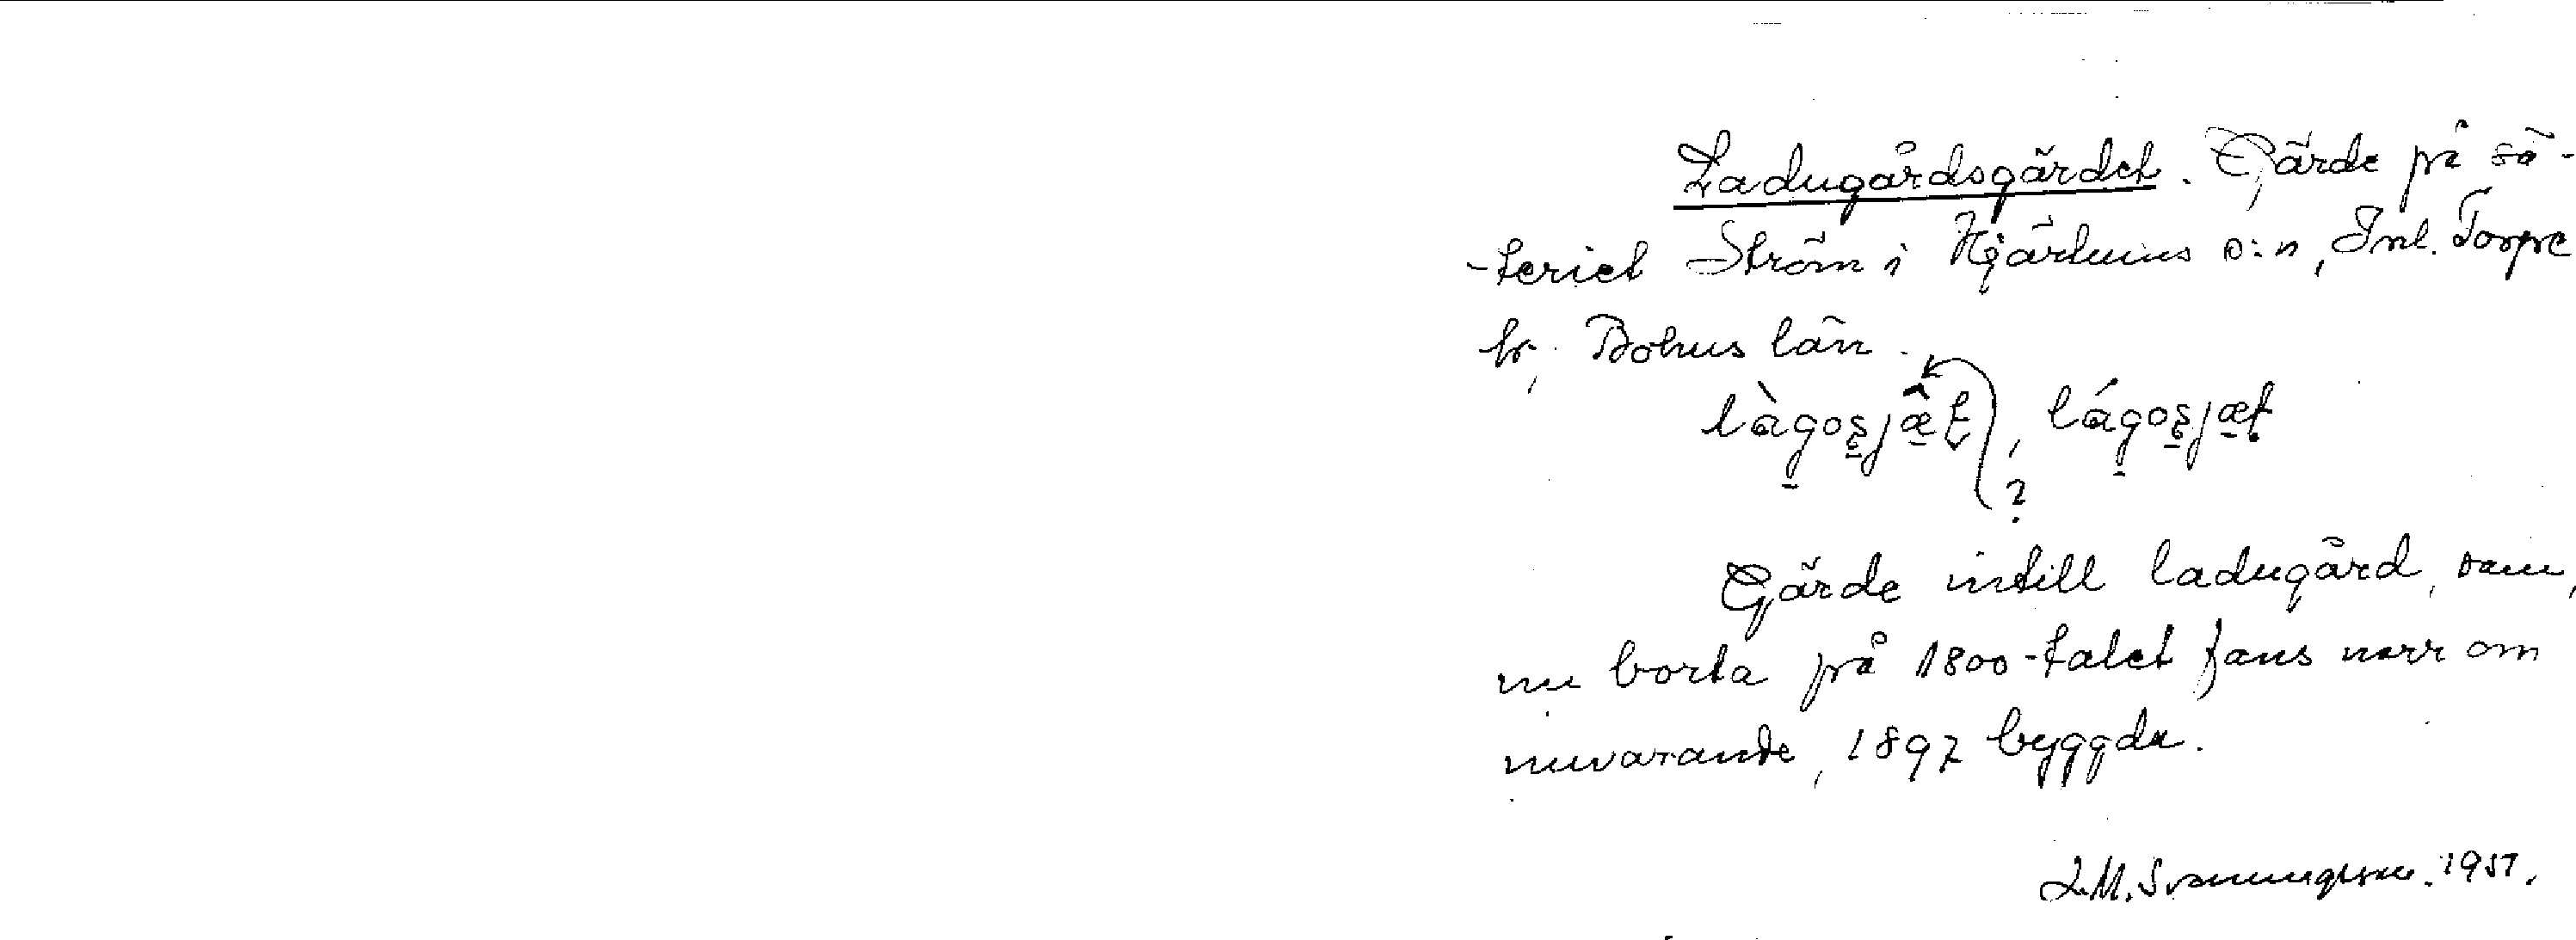 Ladugårdsgärdet. Gärde på sä-
-teriet Ström i Hjärtums s:n, Inl. Torpe
hr, Bohus län.
làgos̱jæ̂t, lágos̱jæt
?
Gärde intill ladugård, som,
nu borta på 1800-talet fans norr om
nuvarande, 1897 byggda.
L.M. Svenungsson. 1951.